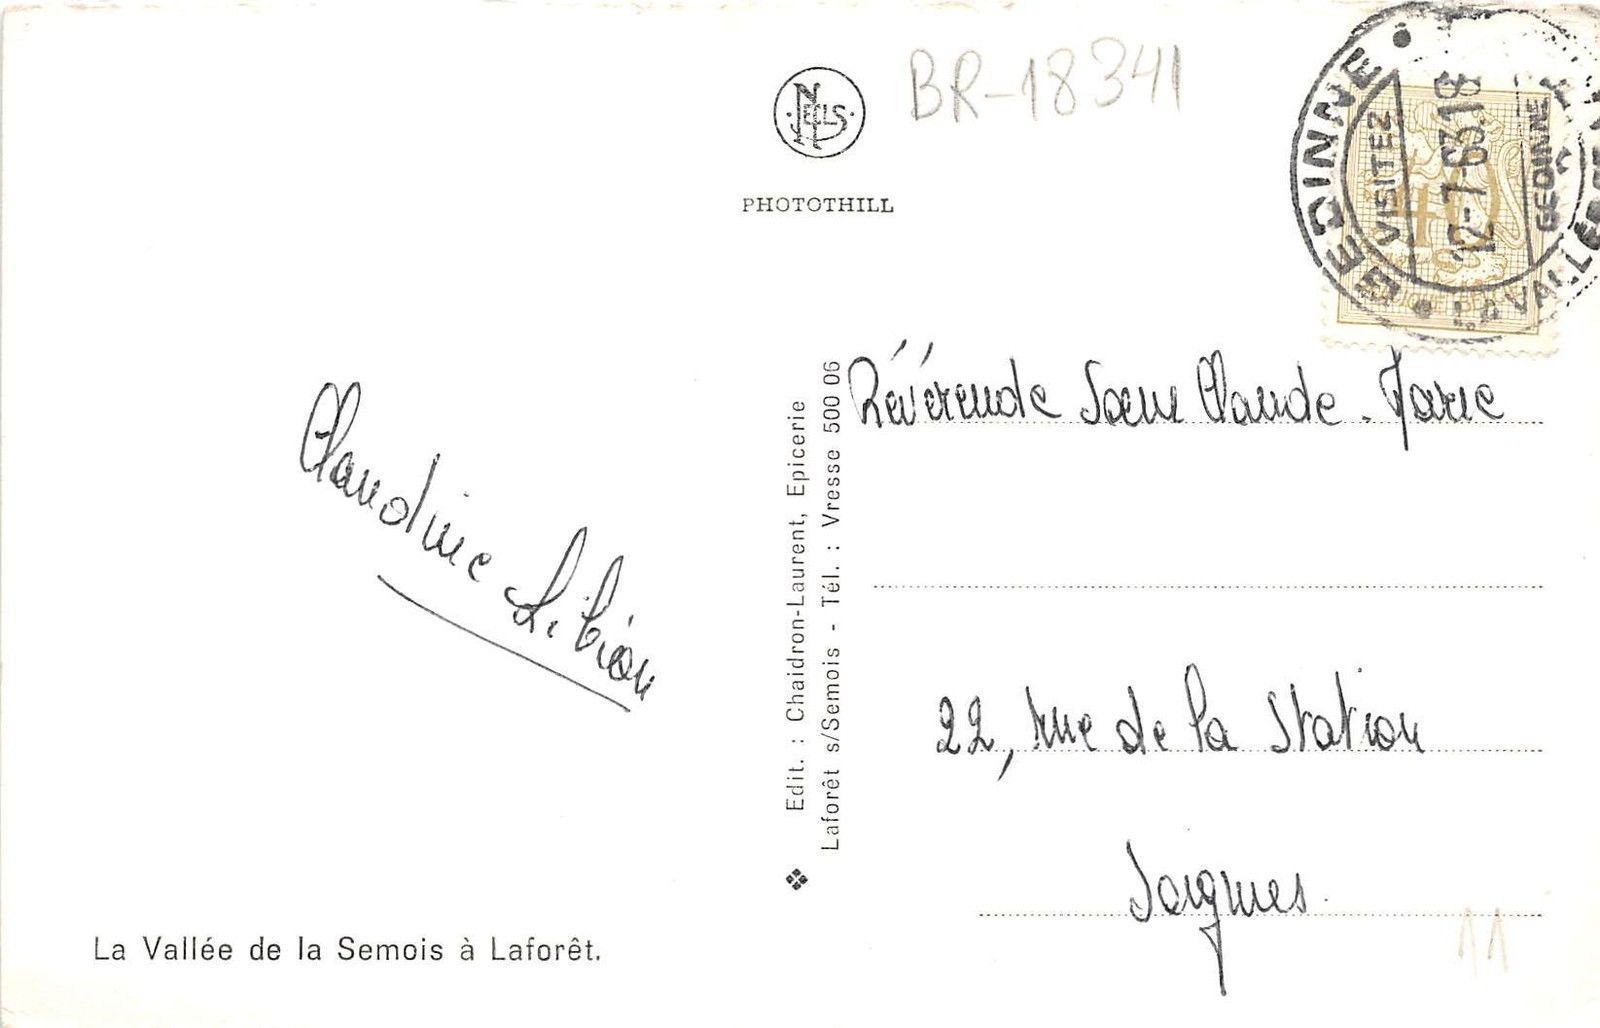 BR-18341
NELS
PHOTOTHILL
GEDINNE
VISITEZ
12-7-63 18
GEDINNE
LA VALLEE
40
Claudine Libion
Révérende Soeur Claude-Marie
22, rue de la Station
Soignies
Edit. : Chaidron-Laurent, Epicerie
Laforêt s/Semois - Tél. : Vresse 500 06
La Vallée de la Semois à Laforêt.
11